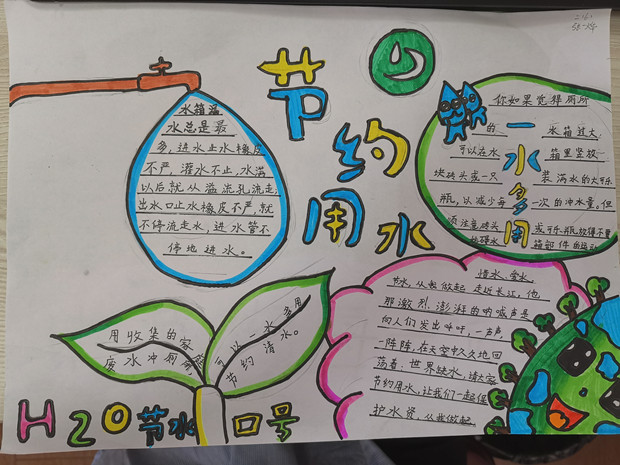 节约用水
水箱漏
水总是最
多,进水止水橡皮
不严,灌水不止,水满
以后就从溢流孔流走;
出水口止水橡皮不严,就
不停流走水,进水管不
停地进水。
你如果觉得厕所
的一水多用水箱过大,
可以在水箱里竖放一
块砖头或一只装满水的大可乐
瓶,以减少每一次的冲水量。但
须注意砖头或可乐瓶放得不要
箱部件的运动
用收集的家庭
废水冲厕所
可以一水多用
节约清水。
惜水、爱水
节水,从我做起 走近长江,他
那激烈、澎湃的呐喊声是
向人们发出呼吁,一声声,
一阵阵,在天空中久久地回
荡着:世界缺水,请大家
节约用水,让我们一起保
护水资,从我做起
H2O节水口号